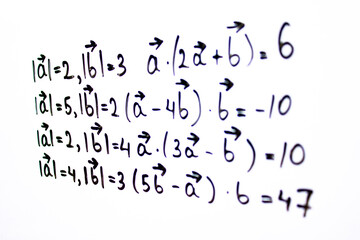 |a⃗|=2, |b⃗|=3 a⃗·(2a⃗+b⃗)=6
|a⃗|=5, |b⃗|=2 (a⃗-4b⃗)·b⃗=-10
|a⃗|=2, |b⃗|=4 a⃗·(3a⃗-b⃗)=10
|a⃗|=4, |b⃗|=3 (5b⃗-a⃗)·b=47